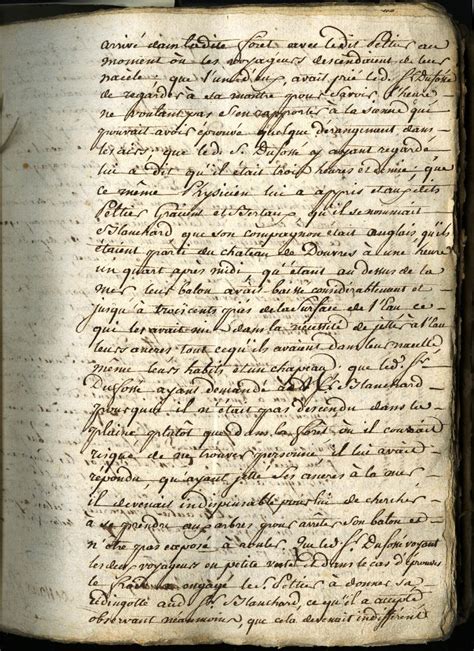 arrivé dans ladite forêt avec ledit Pelties au
moment où les voyageurs descendoient de leur
nacele; que l'un d'eux, avait prié led. Sr. Dufossé
de regarder à sa montre pour savoir l'heure
ne voulant pas s'en rapporter à la sienne qui
pouvait avoir éprouvé quelque derangement dans
les airs; que led. Sr. Dufossé y ayant regardé
lui a dit qu'il était trois heures et demie, que
ce même Physicien lui a appris et auxdits
Pelties Gravent et qu'il se nommait
Blanchard que son compagnon était anglais qu'ils
étaient parti du chateau de Douvres à une heure
un quart apres midi, qu'étant au dessus de la
mer leur balon avait baissé considerablement et
jusqu'à trois cents pies de la surface de l'eau ce
qui les avait mis dans la nécessité de jetter à l'eau
leurs ancres tout ce qu'ils avaient dans leur nacelle
même leurs habits et un chapeau; que led. Sr.
Dufossé ayant demandé Blanchard
pourquoi il n'était pas descendu dans la
plaine plutôt que dans la forêt où il courait
risque de ne trouver personne il lui avait
répondu, que ayant jetté ses ancres à la mer,
il devenait indispensable pour lui de chercher
à se prendre aux arbres pour arrêter son balon et
n'être pas exposé à Qu led. Sr. Dufossé voyant
les deux voyageurs en petite veste et dans le cas d'éprouver
le froid a engagé le Sr. Pelties à donner sa
redingotte aud. Sr. Blanchard, ce qu'il a accepté
observant néanmoins, que cela devenait indifferent